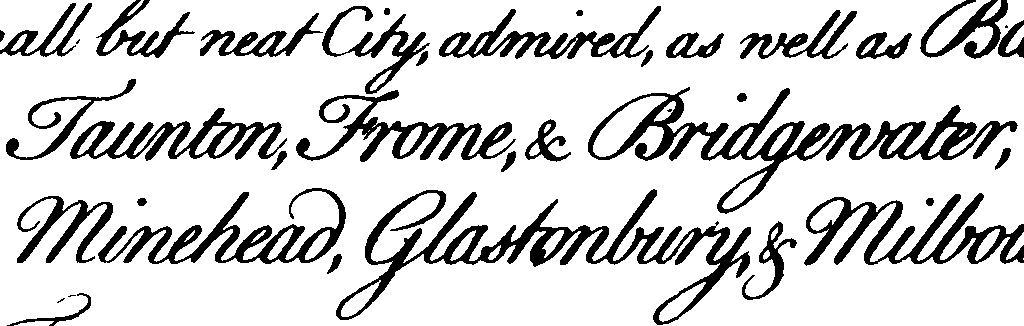 all but neat City, admired, as well as Ba
Taunton, Frome, & Bridgewater,
Minehead, Glastonbury, & Milbou